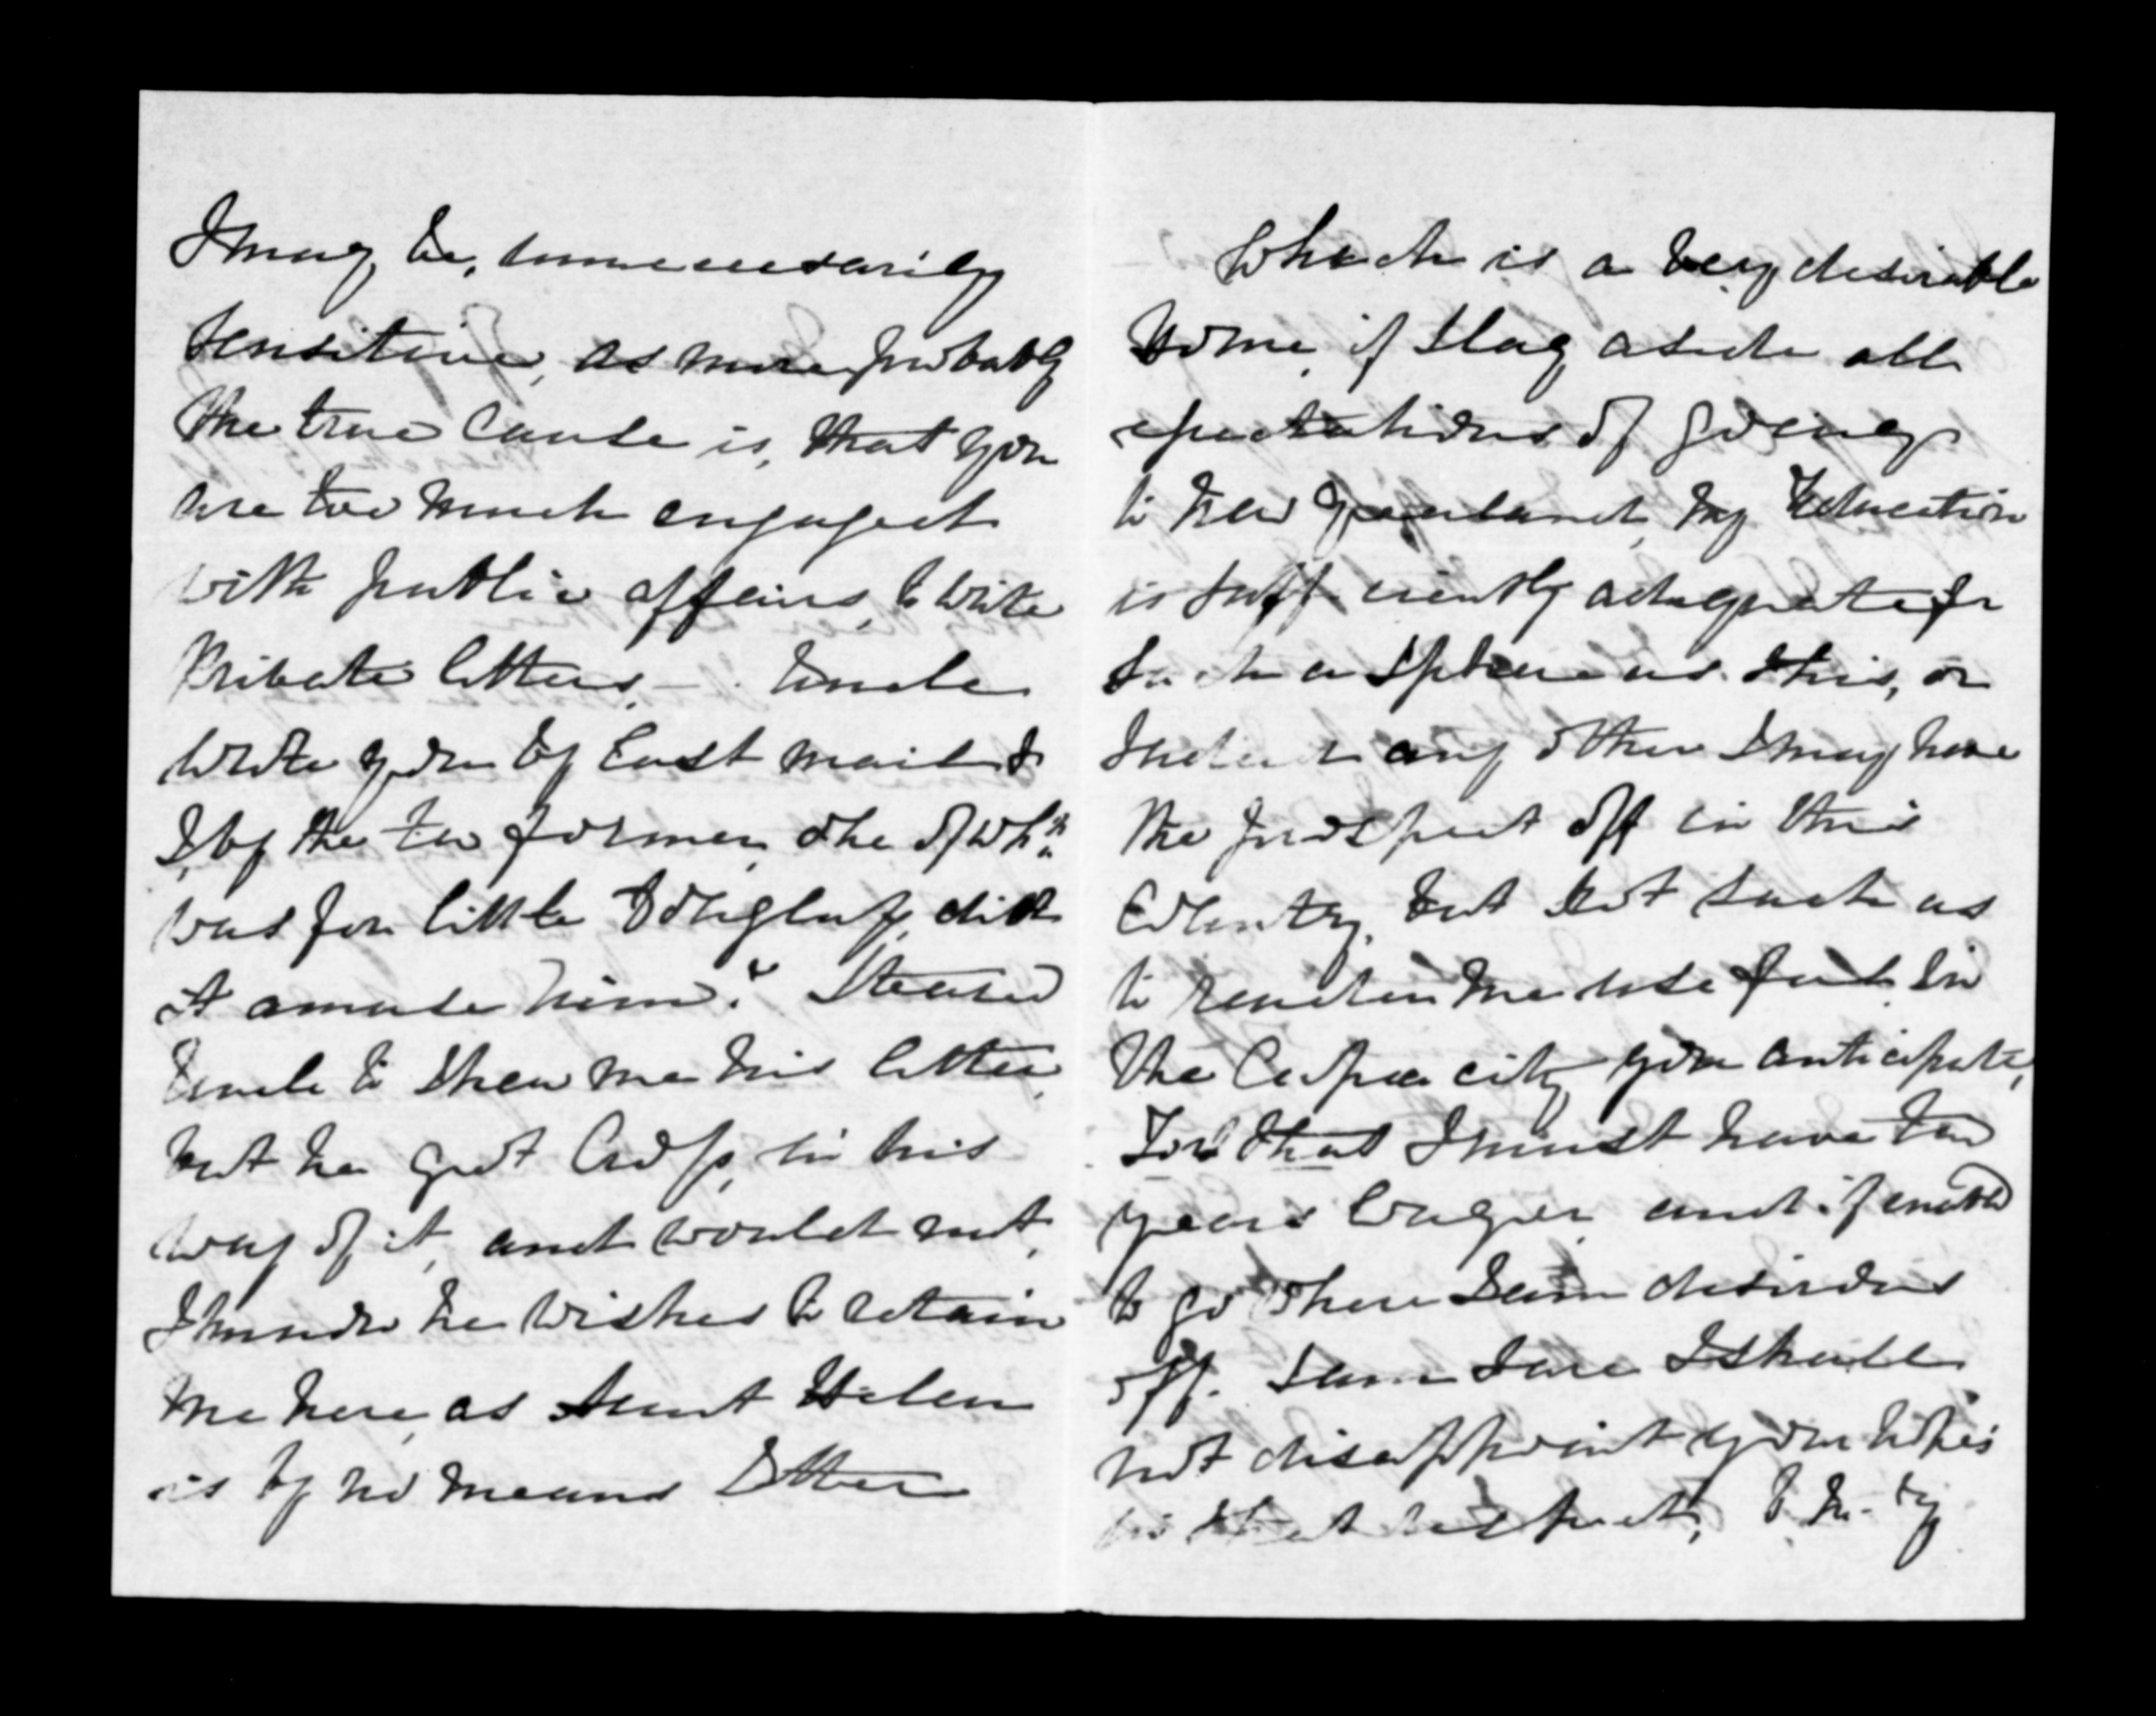 I may be, unnecessarily
sensitive, as more probably
the true cause is, that you
are too much engaged
with public affairs, to write
private letters, — Uncle
wrote you by last mail &
I, by the two former, one of wh:ch
was for little Douglas, did
it amuse him? I teased
Uncle to shew me his letter,
but he got Cross, in his
way of it, and would not,
I know he wishes to retain
me here, as Aunt Helen
is by no means better
Which is a very desirable
home, if I lay aside all
expectations of going
to New Zealand, my Education
is sufficiently adequate for
such a sphere as this, or
indeed any other I may have
the prospect off in this
Country, but not such as
to render me useful in
the Capacity you anticipate,
For that I must have two
years longer and if enabled
to go where I am desirous
off. I am sure I shall
not disappoint your hopes
in that respect,